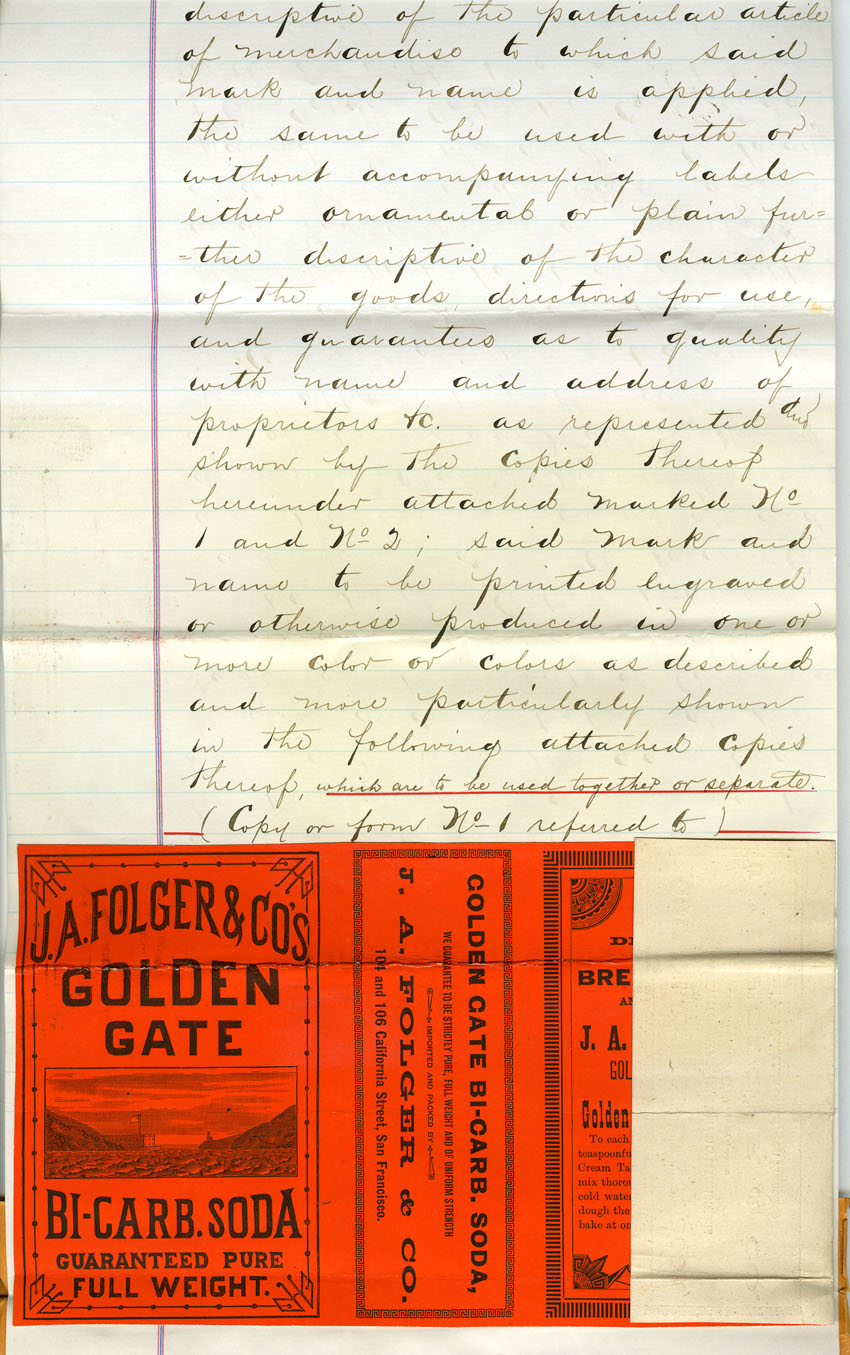 descriptive of the particular article
of merchandise to which said
mark and name is applied,
the same to be used with or
without accompanying labels
either ornamental or plain fur=
=ther descriptive of the character
of the goods, directions for use,
and guarantees as to quality
with name and address of
proprietors &c. as represented and
shown by the copies thereof
hereunder attached marked No
1 and No 2; said mark and
name to be printed engraved
or otherwise produced in one or
more color or colors as described
and more particularly shown
in the following attached copies
thereof, which are to be used together or separate.
(Copy or form No 1 referred to)
J.A. FOLGER & CO'S
GOLDEN
GATE
BI-CARB. SODA
GUARANTEED PURE
FULL WEIGHT.
GOLDEN GATE BI-CARB. SODA,
WE GUARANTEE TO BE STRICTLY PURE, FULL WEIGHT AND OF UNIFORM STRENGTH
IMPORTED AND PACKED BY
J. A. FOLGER & CO.
104 and 106 California Street, San Francisco.
DI
BRE
AN
J. A.
GOL
Golden
To each
teaspoonfu
Cream Ta
mix thorou
cold water
dough the
bake at on